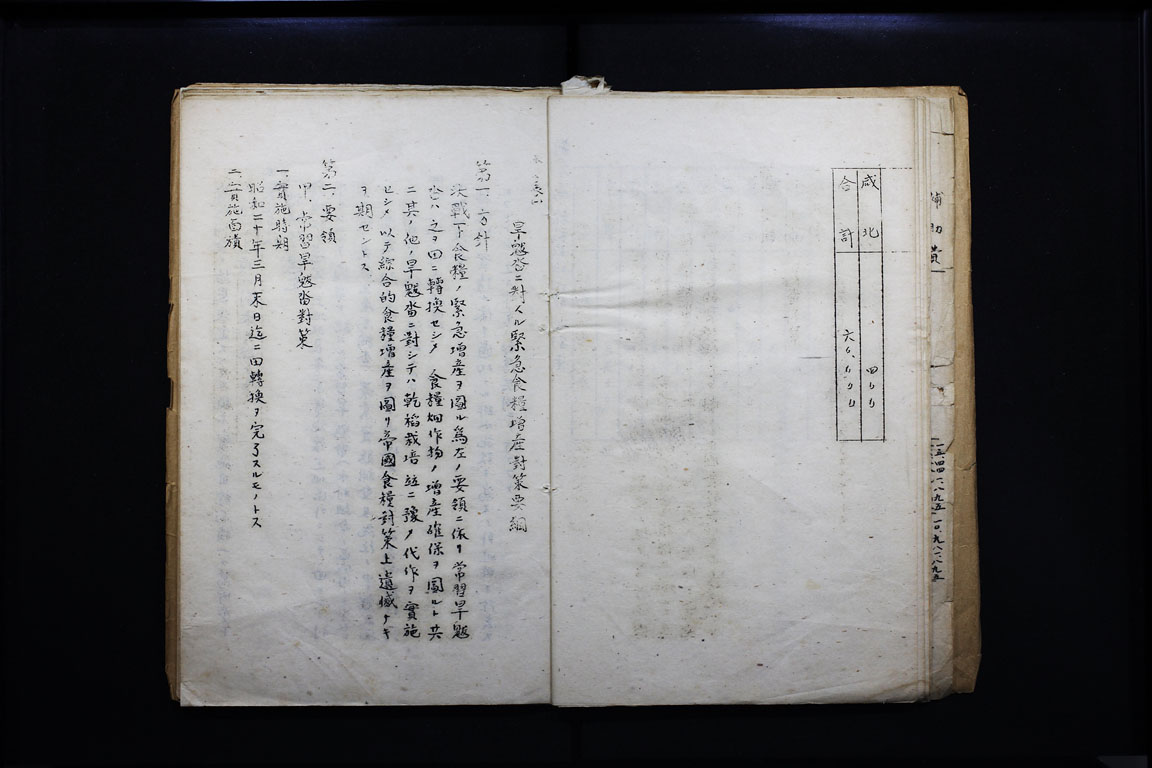 補助費
咸北 四〇〇
合計
旱魃沓ニ対スル緊急食糧増産對策要綱
第一、方針
決戰下食糧ノ緊急増産ヲ圖ル爲左ノ要領ニ依リ常習旱魃
沓ハ之ヲ田ニ轉換セシメ 食糧畑作物ノ増産確保ヲ圖ルト共
ニ其ノ他ノ旱魃沓ニ對シテハ乾稻栽培並ニ豫メ代作ヲ實施
セシメ以テ綜合的食糧増産ヲ圖リ帝國食糧對策上遺憾ナキ
ヲ期セントス
第二、要領
甲、常習旱魃沓對策
一、實施時期
昭和二十年三月末日迄ニ田轉換ヲ完了スルモノトス
二、實施面積